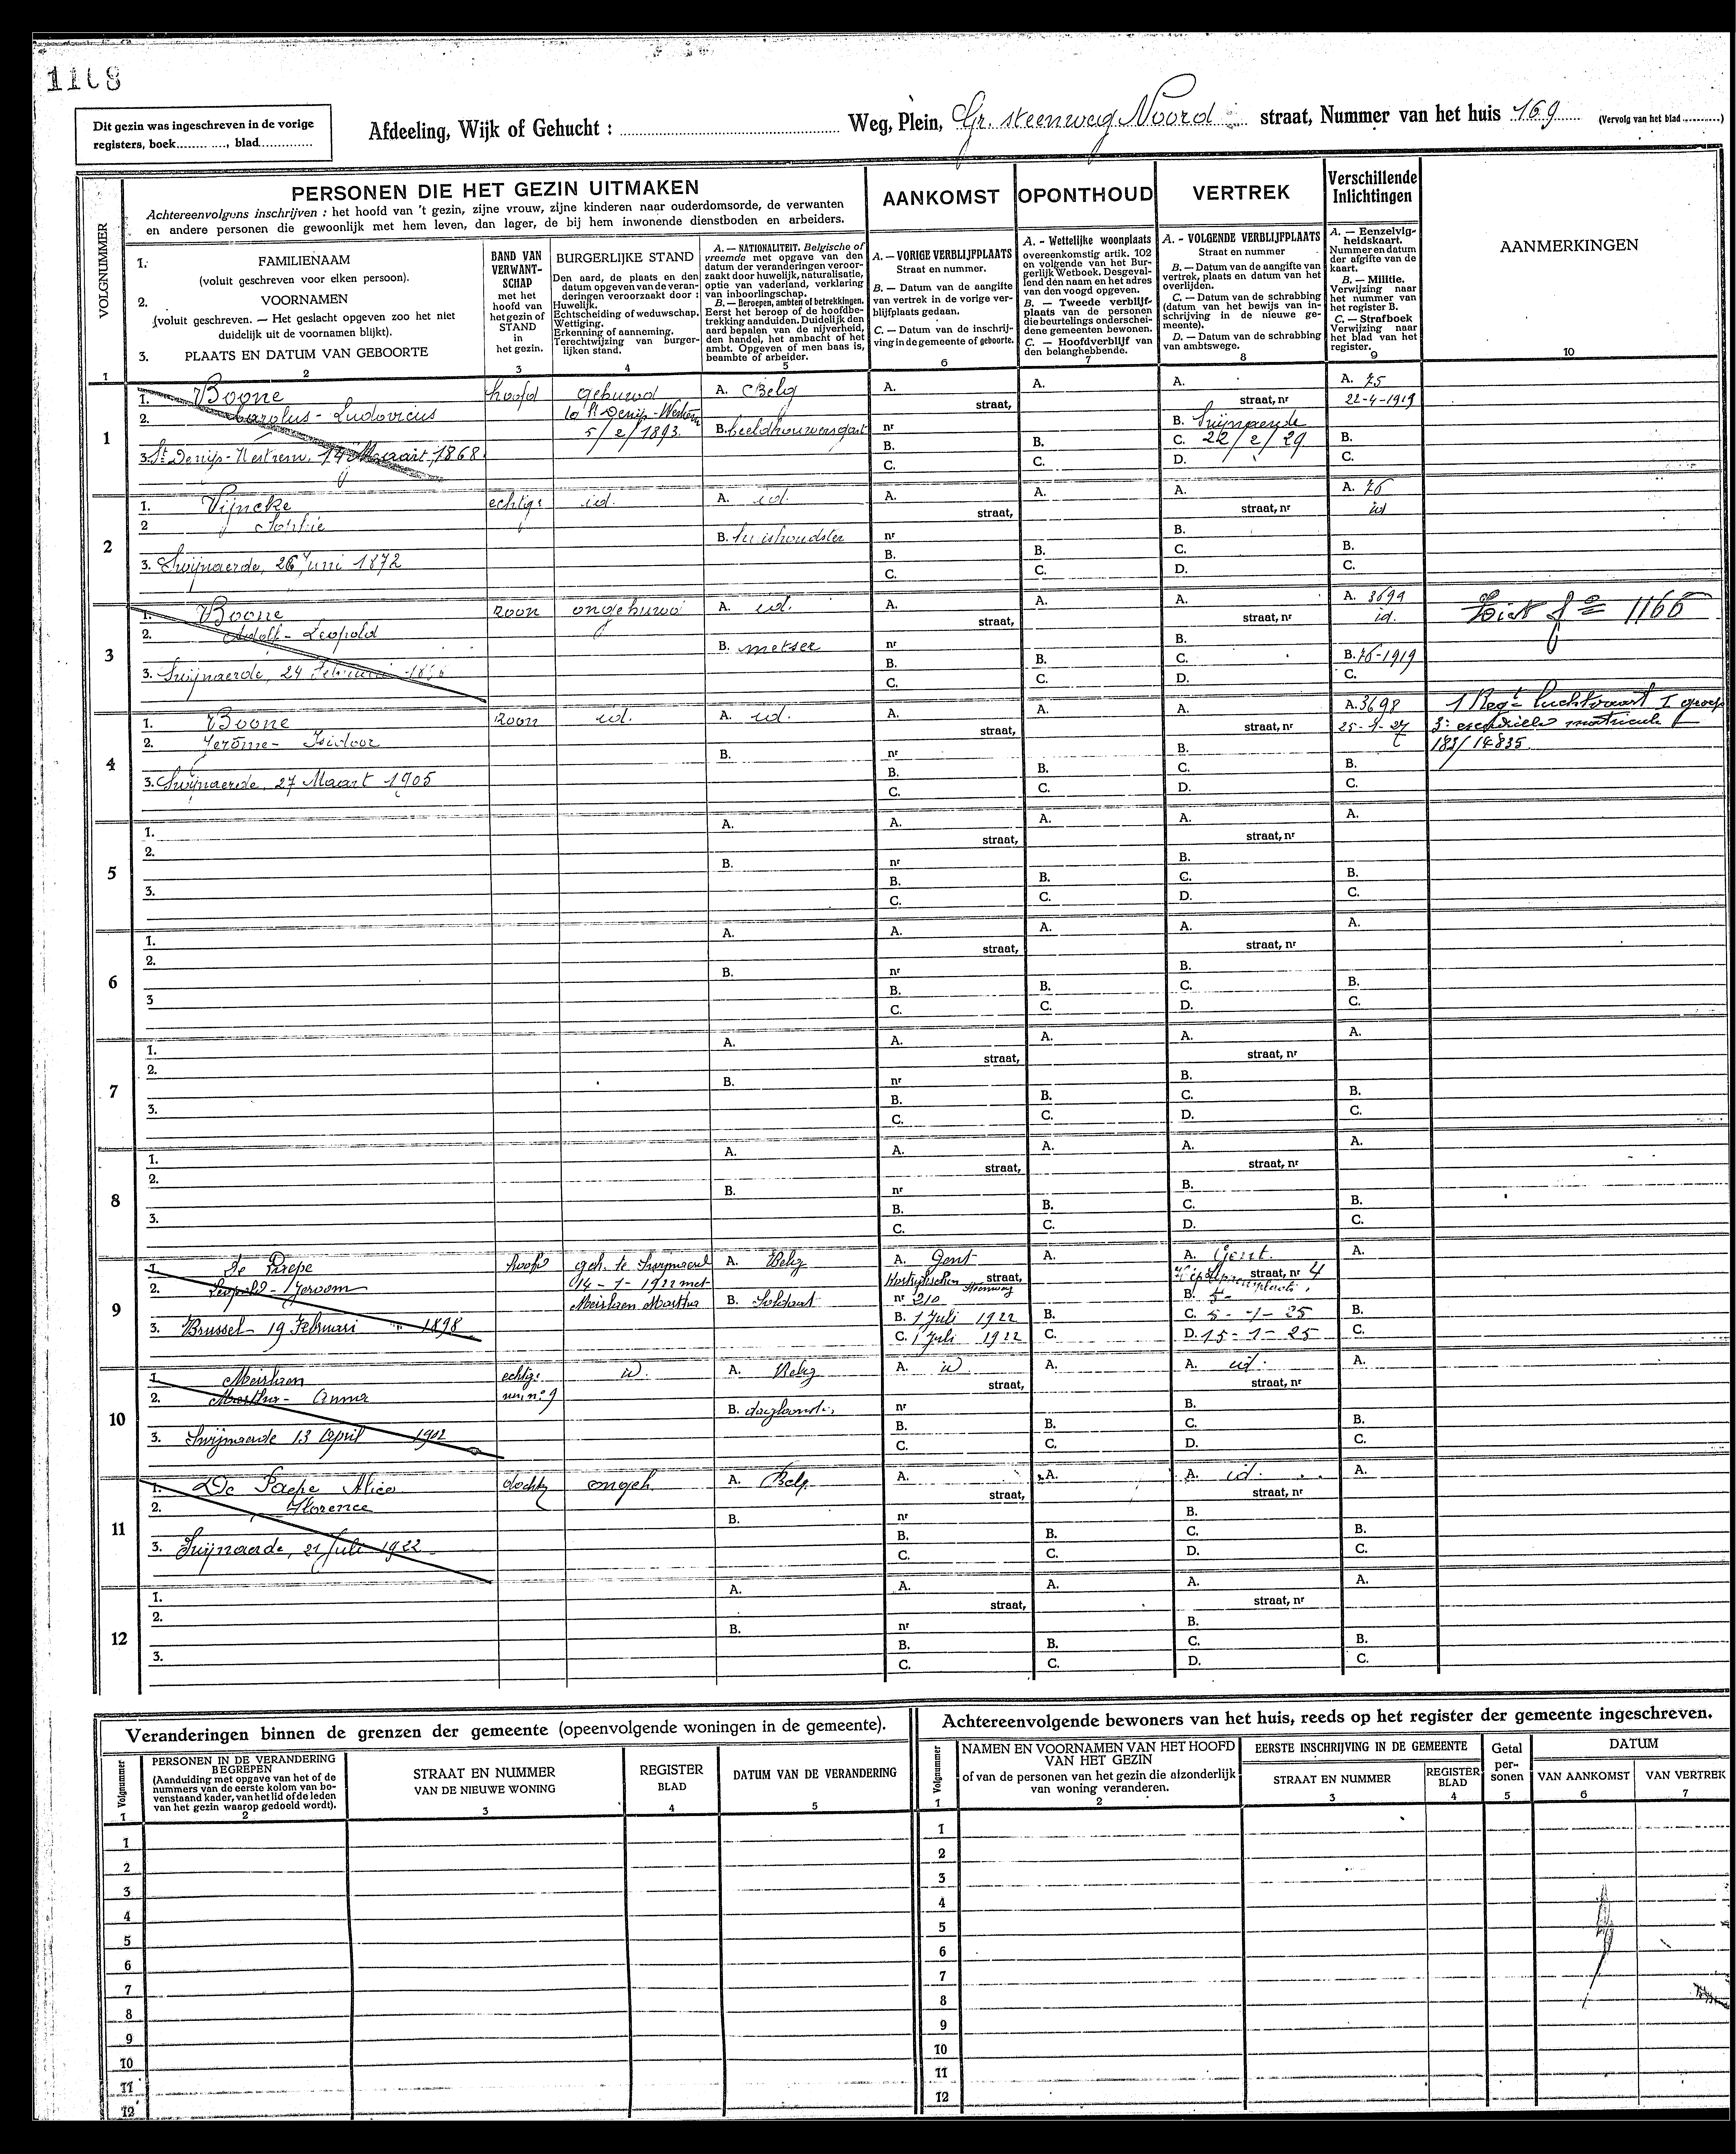 1108
Dit gezin was ingeschreven in de vorige
registers, boek........ ...., blad..............
Afdeeling, Wijk of Gehucht : ........................ Weg, Plein, Gr. steenweg Noord straat, Nummer van het huis 169 (Vervolg van het blad ............)
VOLGNUMMER
PERSONEN DIE HET GEZIN UITMAKEN
Achtereenvolgens inschrijven : het hoofd van 't gezin, zijne vrouw, zijne kinderen naar ouderdomsorde, de verwanten
en andere personen die gewoonlijk met hem leven, dan lager, de bij hem inwonende dienstboden en arbeiders.
AANKOMST
OPONTHOUD
VERTREK
Verschillende
Inlichtingen
AANMERKINGEN
1. FAMILIENAAM
(voluit geschreven voor elken persoon).
2. VOORNAMEN
(voluit geschreven. — Het geslacht opgeven zoo het niet
duidelijk uit de voornamen blijkt).
3. PLAATS EN DATUM VAN GEBOORTE
BAND VAN
VERWANT-
SCHAP
met het
hoofd van
het gezin of
STAND
in
het gezin.
BURGERLIJKE STAND
Den aard, de plaats en den
datum opgeven van de veran-
deringen veroorzaakt door :
Huwelijk.
Echtscheiding of weduwschap.
Wettiging.
Erkenning of aanneming.
Terechtwijzing van burger-
lijken stand.
A. — NATIONALITEIT. Belgische of
vreemde met opgave van den
datum der veranderingen veroor-
zaakt door huwelijk, naturalisatie,
optie van vaderland, verklaring
van inboorlingschap.
B. — Beroepen, ambten of betrekkingen.
Eerst het beroep of de hoofdbe-
trekking aanduiden. Duidelijk den
aard bepalen van de nijverheid,
den handel, het ambacht of het
ambt. Opgeven of men baas is,
beambte of arbeider.
A. — VORIGE VERBLIJFPLAATS
Straat en nummer.
B. — Datum van de aangifte
van vertrek in de vorige ver-
blijfplaats gedaan.
C. — Datum van de inschrij-
ving in de gemeente of geboorte.
A. - Wettelijke woonplaats
overeenkomstig artik. 102
en volgende van het Bur-
gerlijk Wetboek. Desgeval-
lend den naam en het adres
van den voogd opgeven.
B. — Tweede verblijf-
plaats van de personen
die beurtelings onderschei-
dene gemeenten bewonen.
C. — Hoofdverblijf van
den belanghebbende.
A. - VOLGENDE VERBLIJFPLAATS
Straat en nummer
B. — Datum van de aangifte van
vertrek, plaats en datum van het
overlijden.
C. — Datum van de schrabbing
(datum van het bewijs van in-
schrijving in de nieuwe ge-
meente).
D. — Datum van de schrabbing
van ambtswege.
A. — Eenzelvig-
heidskaart.
Nummer en datum
der afgifte van de
kaart.
B. — Militie.
Verwijzing naar
het nummer van
het register B.
C. — Strafboek
Verwijzing naar
het blad van het
register.
1 2 3 4 5 6 7 8 9 10
1
1. Boone hoofd gehuwd A. Belg A. straat, A. A. straat, nr A. 75
22-4-1919
2. Carolus - Ludovicus to St Denijs-Westrem
5/2/1893. B. beeldhouwersgast nr B. Swijnaerde
3. St Denijs-Westrem, 14 Maart 1868 B. C. B. C. C. 22/2/29 D. B. C.
2
1. Vijncke echtg: id. A. id. A. straat, A. A. straat, nr A. 76
id
2 Sophie B. huishoudster nr B.
3. Swijnaerde, 26 Juni 1872 B. C. B. C. C. D. B. C.
3
1. Boone zoon ongehuwd A. id. A. straat, A. A. straat, nr A. 3699
id. Ziet f° 1166
2. Adolf - Leopold B. metser nr B.
3. Swijnaerde, 24 Februari B. C. B. C. C. D. B. 76-1919 C.
4
1. Boone zoon id. A. id. A. straat, A. A. straat, nr A. 3698 1 Regt luchtvaart I groep
2. Jerôme - Isidoor B. nr B. 3e matricule
183/14835
3. Swijnaerde, 27 Maart 1905 B. C. B. C. C. D. B. C.
5
1. A. A. straat, A. A. straat, nr A.
2. B. nr B.
3. B. C. B. C. C. D. B. C.
6
1. A. A. straat, A. A. straat, nr A.
2. B. nr B.
3 B. C. B. C. C. D. B. C.
7
1. A. A. straat, A. A. straat, nr A.
2. B. nr B.
3. B. C. B. C. C. D. B. C.
8
1. A. A. straat, A. A. straat, nr A.
2. B. nr B.
3. B. C. B. C. C. D. B. C.
9
1. De Paepe hoofd geh. te Swijnaerde A. Belg A. Gent A. A. Gent. A.
2. Leopold - Jeroom 14-1-1922 met Kortrijkschen straat, steenweg straat, nr 4
Meirlaen Martha B. Soldaat nr 210 B. 5-
3. Brussel - 19 Februari 1898 B. 1 Juli 1922 B. C. 5-1-25 B.
C. 1 Juli 1922 C. D. 15-1-25 C.
10
1. Meirlaen echtg: id. A. Belg A. id. straat, A. A. id. straat, nr A.
2. Martha - Anna van n° 9 B. nr B.
3. Swijnaerde 13 April 1902 B. C. B. C. C. D. B. C.
11
1. De Paepe Alice dochter ongeh. A. Belg. A. straat, A. A. id. straat, nr A.
2. Florence B. nr B.
3. Swijnaerde, 21 Juli 1922 B. C. B. C. C. D. B. C.
12
1. A. A. straat, A. A. straat, nr A.
2. B. nr B.
3. B. C. B. C. C. D. B. C.
Veranderingen binnen de grenzen der gemeente (opeenvolgende woningen in de gemeente).
Volgnummer
PERSONEN IN DE VERANDERING
BEGREPEN
(Aanduiding met opgave van het of de
nummers van de eerste kolom van bo-
venstaand kader, van het lid of de leden
van het gezin waarop gedoeld wordt).
STRAAT EN NUMMER
VAN DE NIEUWE WONING
REGISTER
BLAD
DATUM VAN DE VERANDERING
1 2 3 4 5
1
2
3
4
5
6
7
8
9
10
11
12
Achtereenvolgende bewoners van het huis, reeds op het register der gemeente ingeschreven.
Volgnummer
NAMEN EN VOORNAMEN VAN HET HOOFD
VAN HET GEZIN
of van de personen van het gezin die afzonderlijk
van woning veranderen.
EERSTE INSCHRIJVING IN DE GEMEENTE
STRAAT EN NUMMER
REGISTER
BLAD
Getal
per-
sonen
DATUM
VAN AANKOMST
VAN VERTREK
1 2 3 4 5 6 7
1
2
3
4
5
6
7
8
9
10
11
12